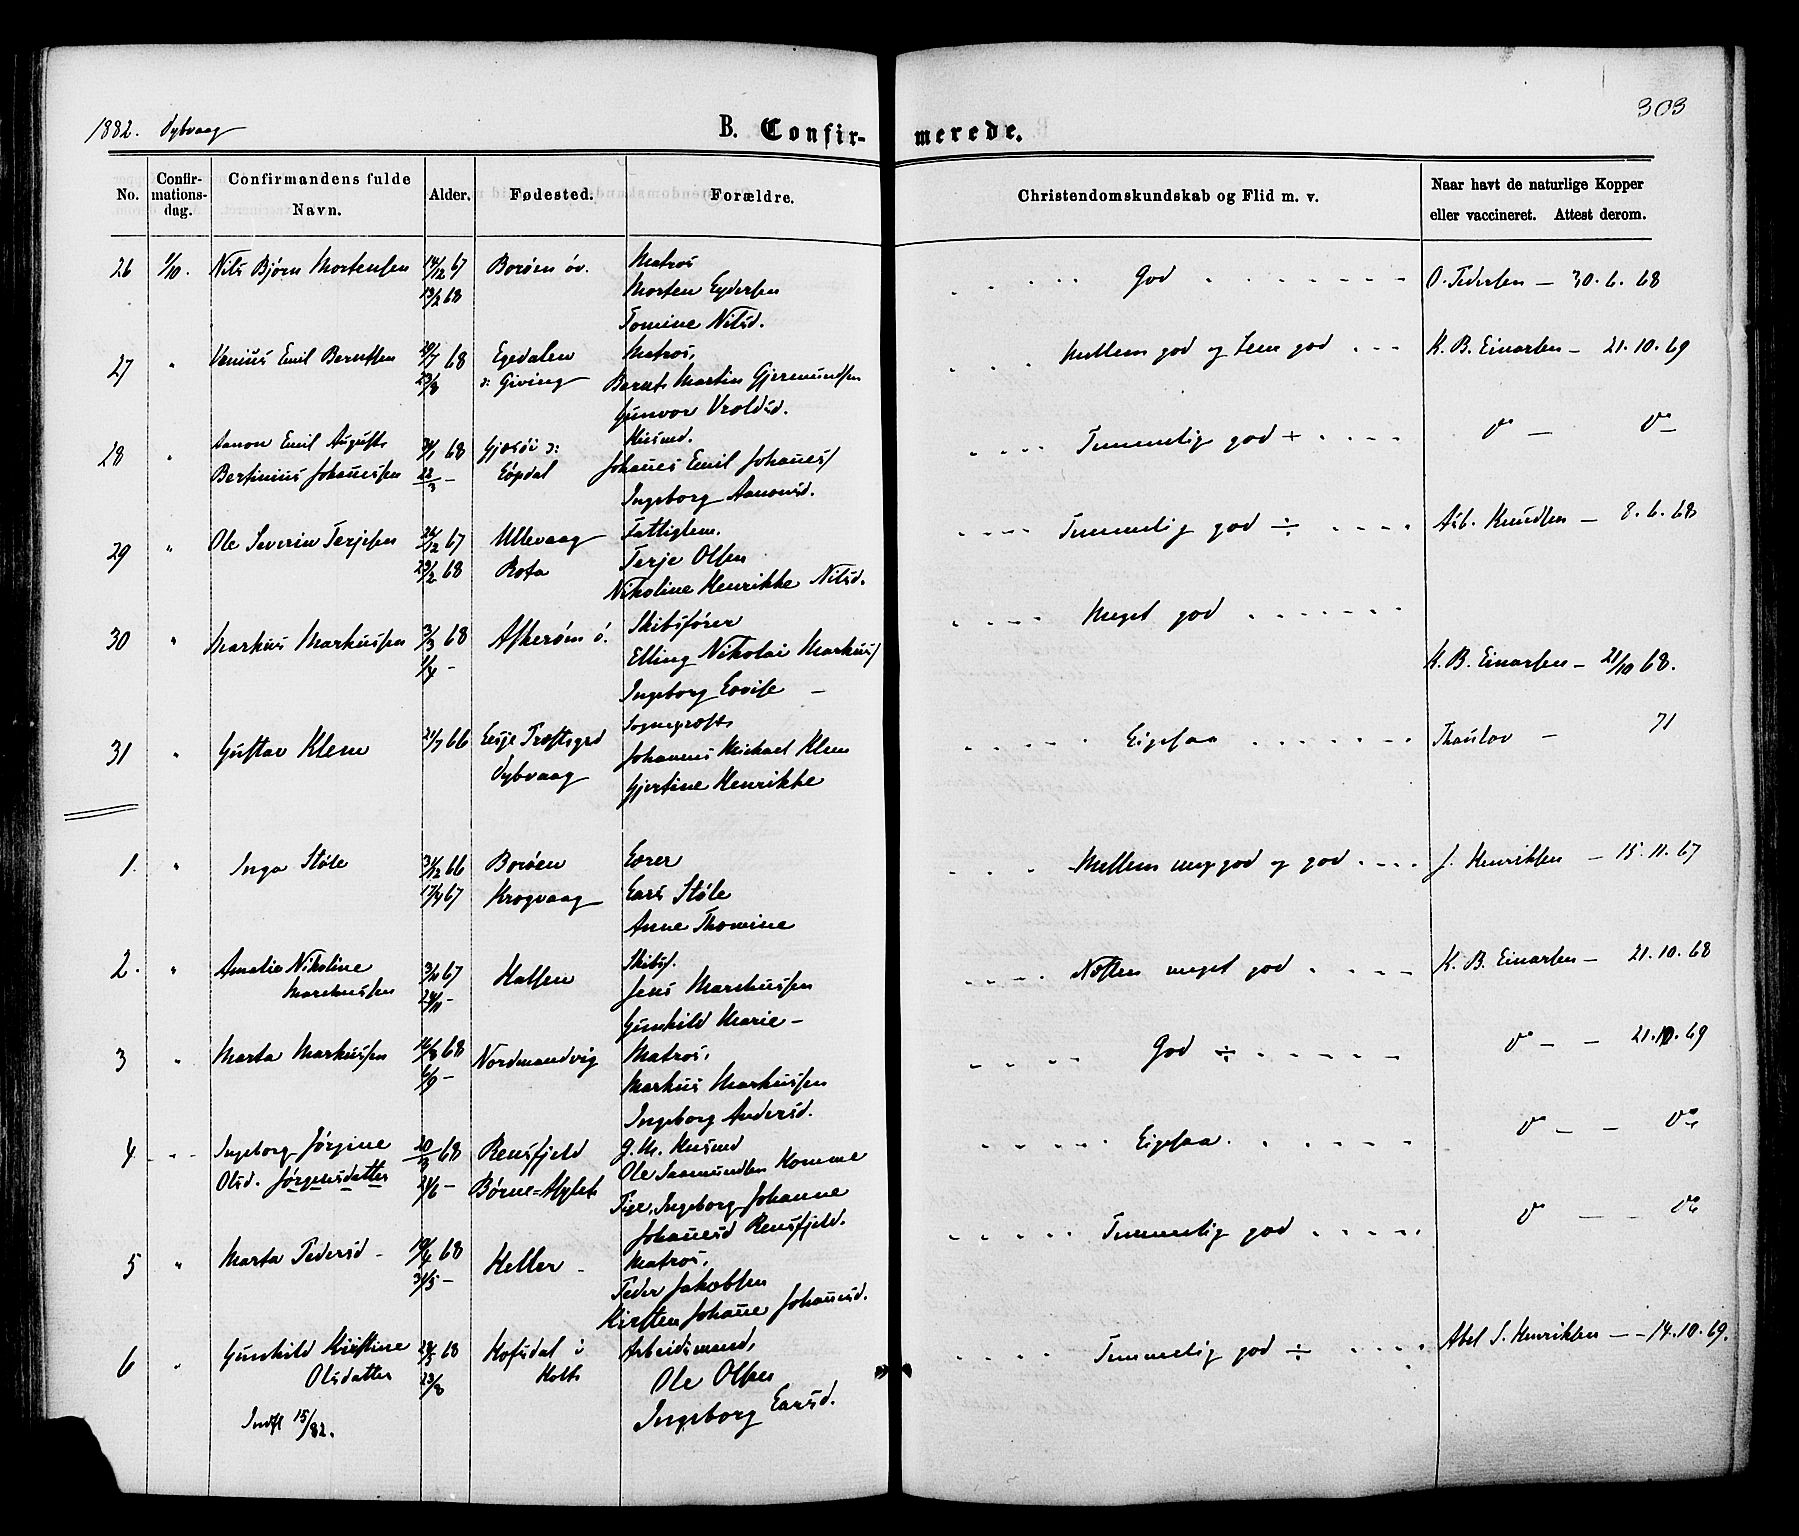 1882. Dybvaag
B. Confir-merede.
303
No.
Confir-mations-dag.
Confirmandens fulde Navn.
Alder.
Fødested.
Forældre.
Christendomskundskab og Flid m. v.
Naar havt de naturlige Kopper eller vaccineret. Attest derom.
26 1/10. Nils Bjørn Mortensen 14/12 67 Borøen øv. Matros God O. Pedersen — 30.6.68
13/2 68 Morten Eydersen
Tomine Nilsd.
27 " Emil Berntsen 20/7 68 Egedalen Matros, Mellem god og tem god K. B. Einarsen — 21.10.69
23/8 ɔ: Giving Bernt Martin Gjermundsen
Gunvor Vroldsd.
28 " Aanon Emil August 68 Gjæsøi ɔ: Husmd. Temmelig god + do — do
Bertinius Johannessen 22/3 — Løpdal Johanes Emil Johanes/
Ingeborg Aanonsd.
29 " Ole Severin Terjesen 26/12 67 Ullevaag Fattiglem. Temmelig god ÷ Asb. Knudsen — 8.6.68
23/2 68 Rota Terje Olsen
Nikoline Henrikke Nilsd.
30 " Markus Markussen 3/3 68 Askerøen ø. Skibsfører Meget god
1/4 — Elling Nikolai Markus/ K. B. Einarsen — 21/10 68.
Ingeborg Lovise —
31 " Gustav Klem 21/7 66 Lesje Præstgrd Sogneprest Eigesaa Thaulov — 71
Dybvaag Johannes Michael Klem
Gjertine Henrikke
1. " Inga Støle 31/12 66 Borøen Lærer Mellem meg god og god J. Henriksen — 15.11.67
17/4 67 Krogvaag Lars Støle
Anne Thomine
2. " Amalie Nikoline 67 Halsen Skibsf. Næsten meget god K. B. Einarsen — 21.10.68
Markussen 24/11 — Jens Markussen
Gunhild Marie —
3 " Marta Markussen 16/8 68 Nordmandvig Matros, God ÷ do — — 21.10.69
6/9 — Markus Markussen
Ingeborg Andersd.
4 " Ingeborg Jørgine 20/3 68 Rensfjeld G. M. Husmd Eigesaa do — — do
Olsd. Jørgensdatter 24/6 — Børne=Asylet Ole Saamundsen Homme
Pige, Ingeborg Johanne
Johannesd Rensfjeld.
5 " Marta Pedersd — 19/4 68 Heller — Matros, Temmelig god do — — do
31/5 — Peder Jakobsen
Kirsten Johane Johanesd.
6 " Gunhild Kristine 24/5 68 Hofsdal i Arbeidsmand, Temmelig god ÷ Abel S. Henriksen — — 14.10.69.
Olsdatter 23/8 Holt Ole Olsen
Indfl 15/82. Ingeborg Larsd.